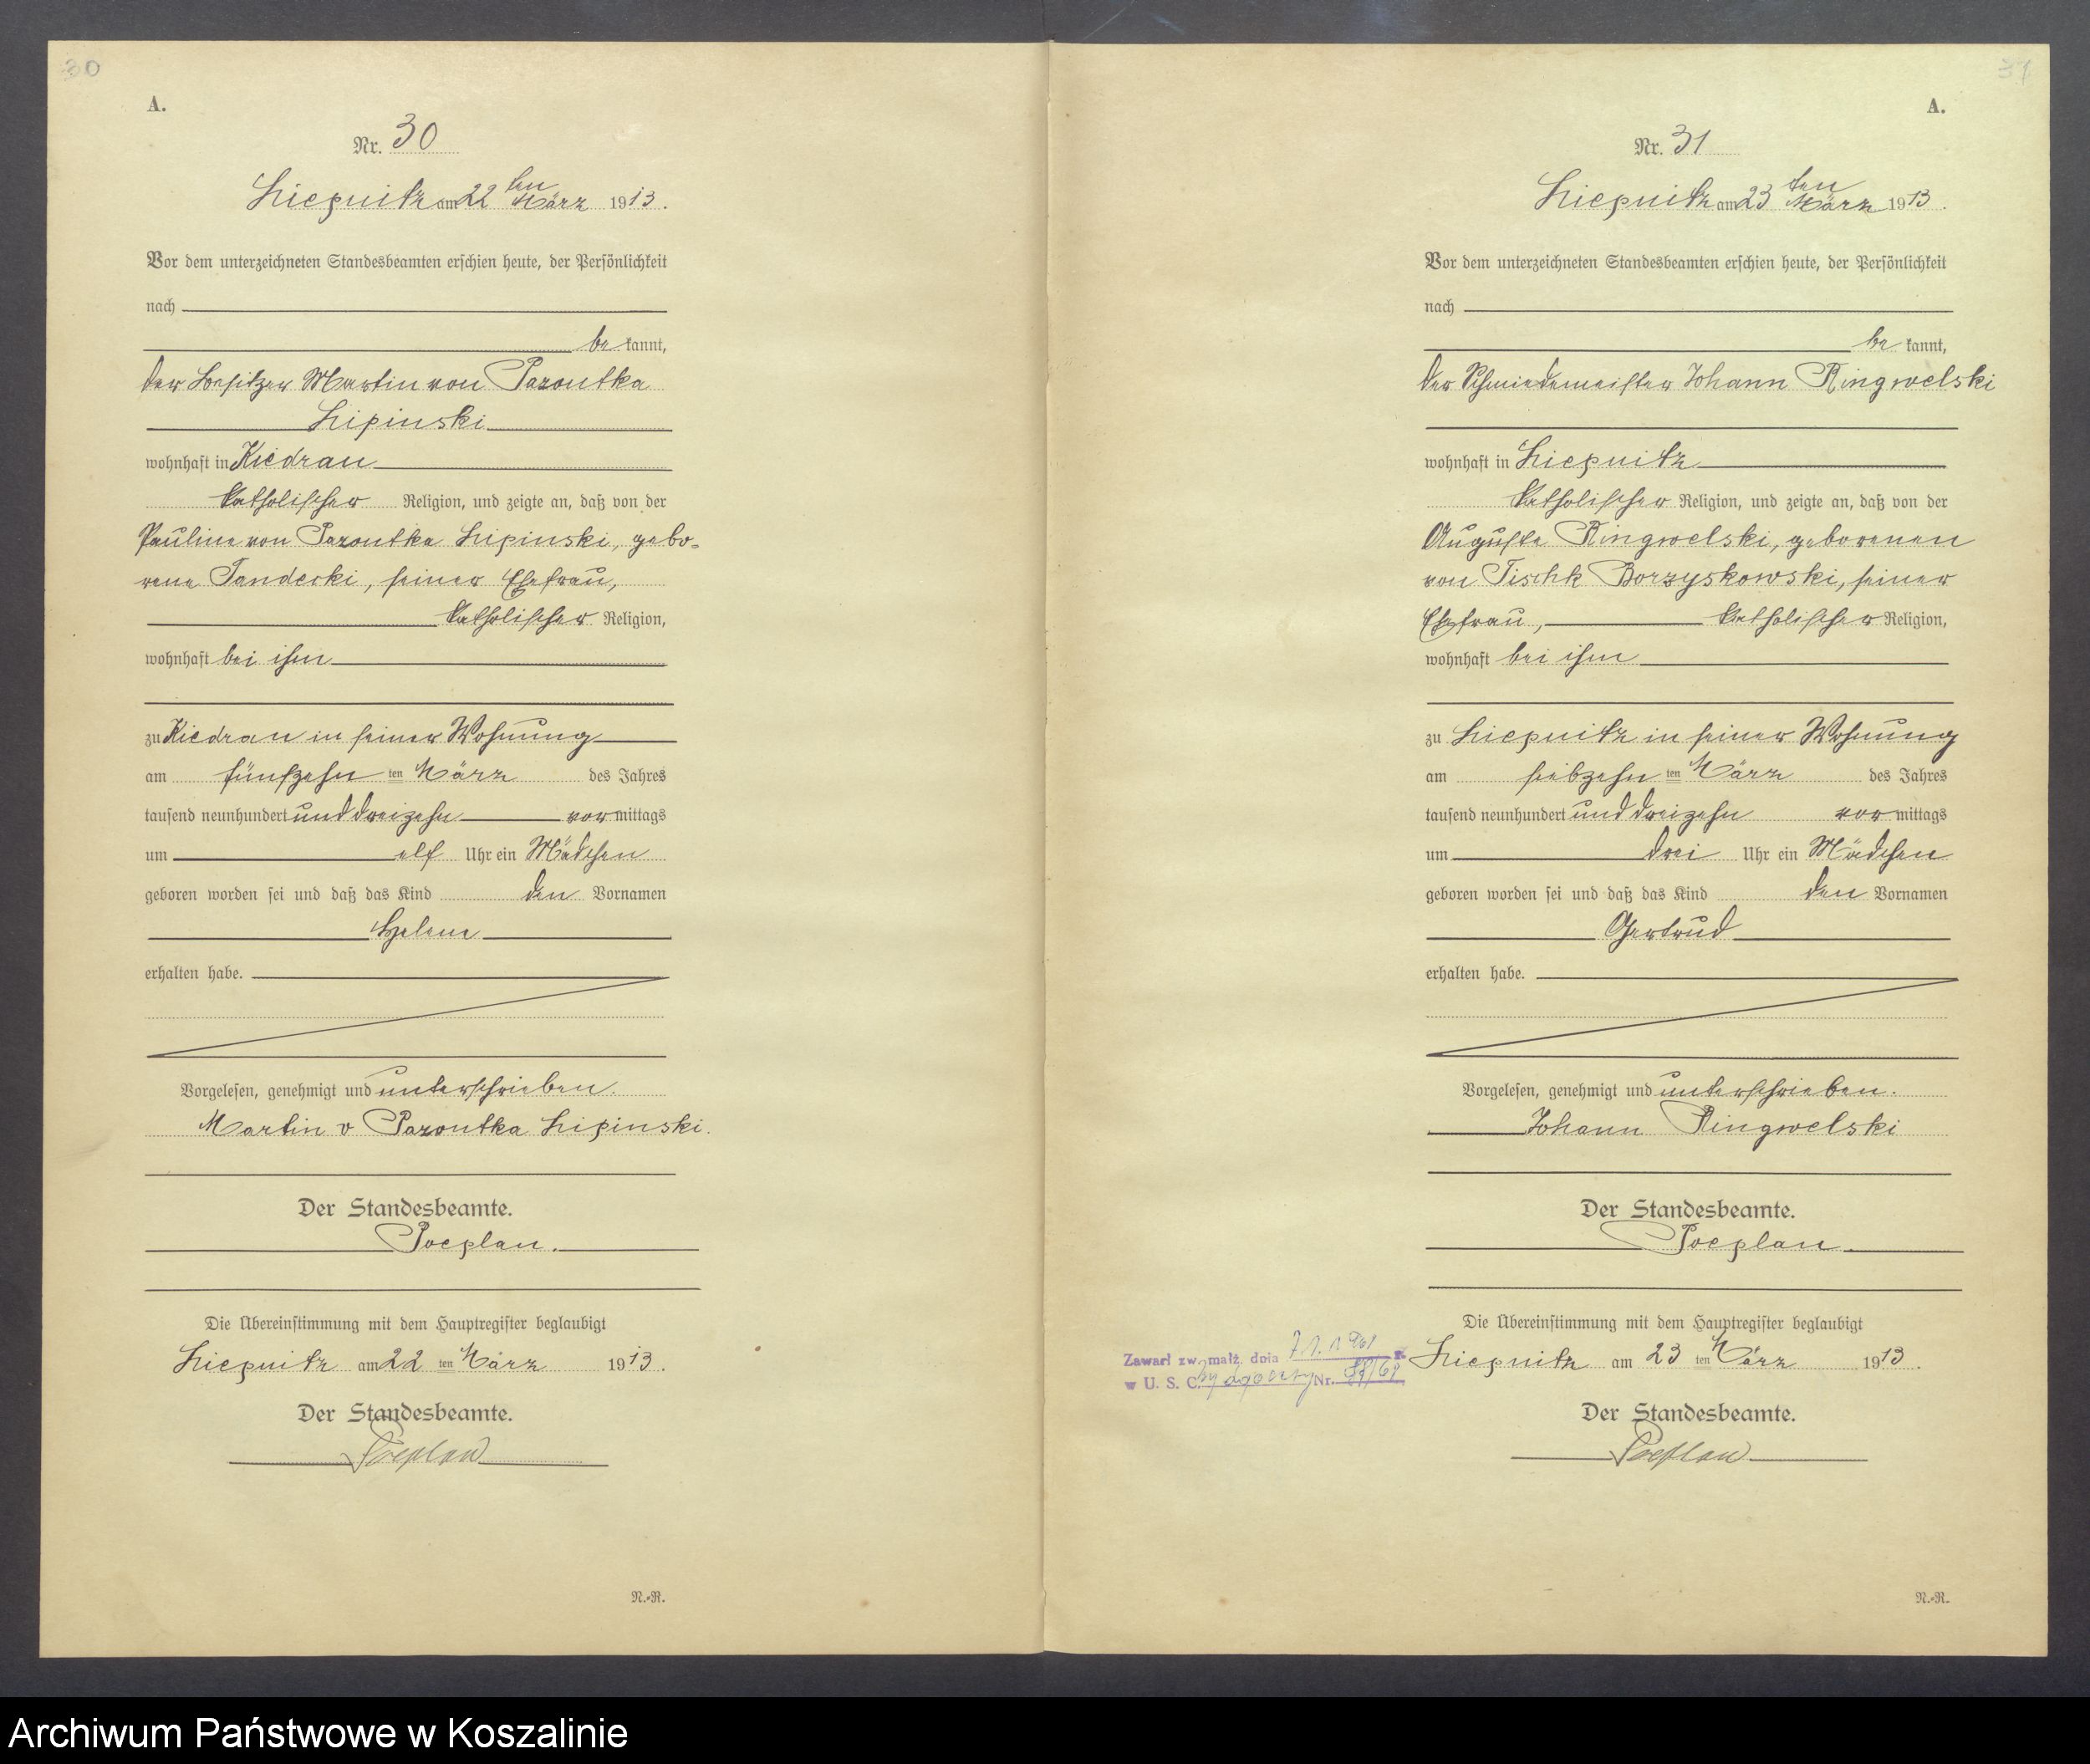 30
A.
Nr. 30
Liepnitz am 22 ten März 1913.
Vor dem unterzeichneten Standesbeamten erschien heute, der Persönlichkeit
nach
be kannt,
der Besitzer Martin von Pazoutka
Lipinski
wohnhaft in Kiedrau
katholischer Religion, und zeigte an, daß von der
Pauline von Pazoutka Lipinski, gebo-
rene Janderki, seiner Ehefrau,
katholischer Religion,
wohnhaft bei ihm
zu Kiedrau in seiner Wohnung
am fünfzehn ten März des Jahres
tausend neunhundert und dreizehn vor mittags
um elf Uhr ein Mädchen
geboren worden sei und daß das Kind den Vornamen
Helene
erhalten habe.
Vorgelesen, genehmigt und unterschrieben.
Martin v Pazoutka Lipinski.
Der Standesbeamte.
Poeplau.
Die Übereinstimmung mit dem Hauptregister beglaubigt
Liepnitz am 22 ten März 1913.
Der Standesbeamte.
Poeplau
N.=R.
31
A.
Nr. 31
Liepnitz am 23 ten März 1913.
Vor dem unterzeichneten Standesbeamten erschien heute, der Persönlichkeit
nach
be kannt,
der Schmiedemeister Johann Ringwelski
wohnhaft in Liepnitz
katholischer Religion, und zeigte an, daß von der
Auguste Ringwelski, geborenen
von Tischk Borzyskowski, seiner
Ehefrau, katholischer Religion,
wohnhaft bei ihm
zu Liepnitz in seiner Wohnung
am siebzehn ten März des Jahres
tausend neunhundert und dreizehn vor mittags
um drei Uhr ein Mädchen
geboren worden sei und daß das Kind den Vornamen
Gertrud
erhalten habe.
Vorgelesen, genehmigt und unterschrieben.
Johann Ringwelski
Der Standesbeamte.
Poeplau.
Die Übereinstimmung mit dem Hauptregister beglaubigt
Zawarł zw. małż. dnia r.
w U. S. C. Bydgoszcz Nr.
Liepnitz am 23 ten März 1913.
Der Standesbeamte.
Poeplau
N.=R.
Archiwum Państwowe w Koszalinie